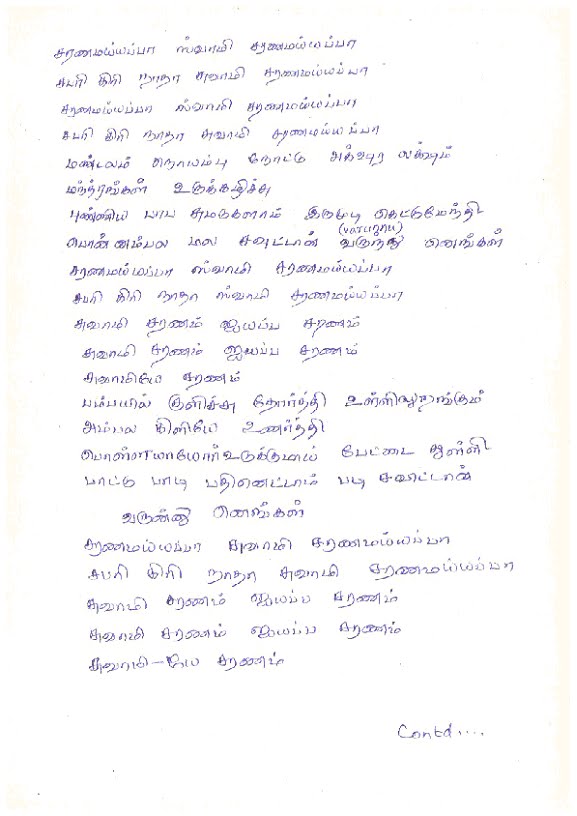 சரணமய்யப்பா ஸ்வாமி சரணமய்யப்பா
சபரி கிரி நாதா சுவாமி சரணமய்யப்பா
சரணமய்யப்பா ஸ்வாமி சரணமய்யப்பா
சபரி கிரி நாதா சுவாமி சரணமய்யப்பா
மண்டலம் நொயம்பு நோட்டு
மந்த்ரங்கள் உருக்கழிச்சு
புண்ணிய பாப சுமடுகளாம் இருமுடி கெட்டுமேந்தி
(varunnu)
பொன்னம்பல மல சவுட்டான் வருந்து ஞெங்கள்
சரணமய்யப்பா ஸ்வாமி சரணமய்யப்பா
சபரி கிரி நாதா ஸ்வாமி சரணமய்யப்பா
சுவாமி சரணம் ஐயப்ப சரணம்
சுவாமி சரணம் ஐயப்ப சரணம்
சுவாமியே சரணம்
பம்பயில் குளிச்சு தோர்த்தி உள்ளிலுறங்கும்
அம்பல கிளியே உணர்த்தி
பேட்டை துள்ளி
பாட்டு பாடி பதினெட்டாம் படி சவுட்டான்
வருன்னு ஞெங்கள்
சரணமய்யப்பா சுவாமி சரணமய்யப்பா
சபரி கிரி நாதா சுவாமி சரணமய்யப்பா
சுவாமி சரணம் ஐயப்ப சரணம்
சுவாமி சரணம் ஐயப்ப சரணம்
சுவாமி-யே சரணம்
Contd....